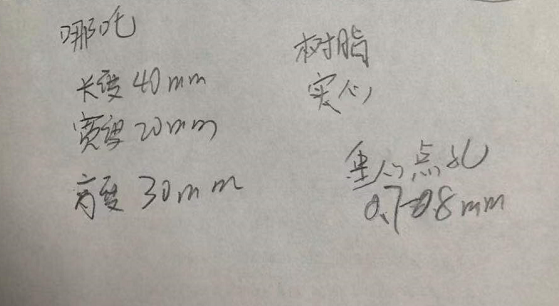 哪吒
长度40mm
宽度20mm
高度30mm
树脂
实心
重心点孔
0.7-0.8mm